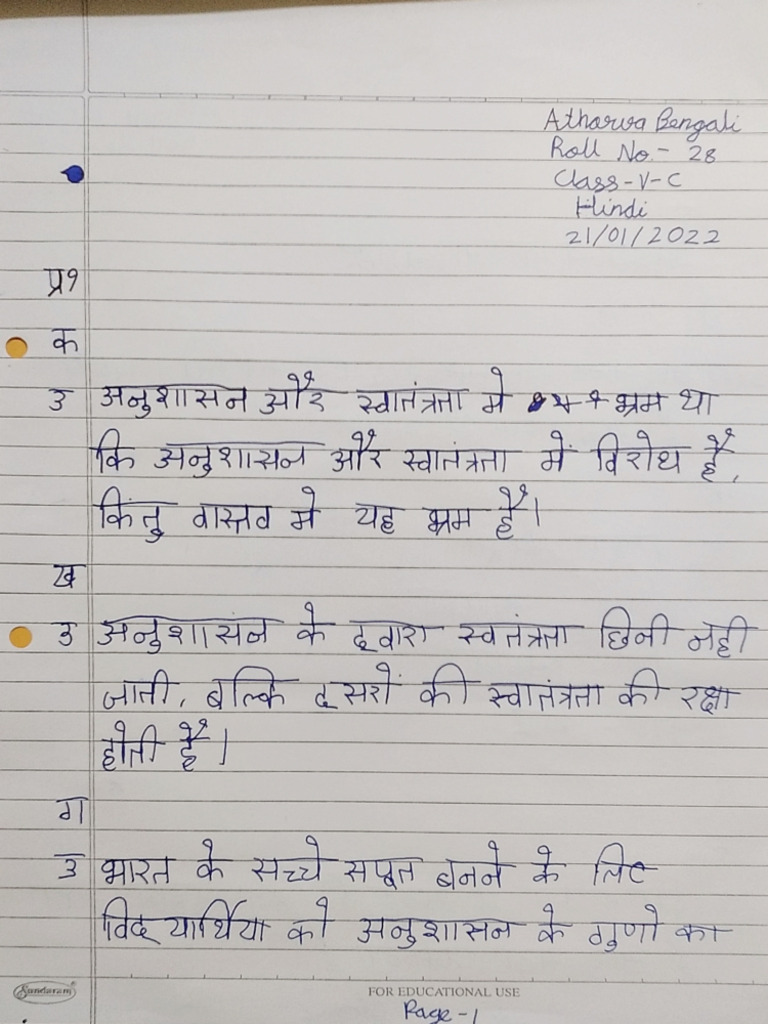 Atharva Bengali
Roll No - 28
Class - V - C
Hindi
21/01/2022
प्र१
क
उ अनुशासन और स्वातंत्रता मे भ्रम था
कि अनुशासन और स्वातंत्रता में विरोध है,
किंतु वास्तव मे यह भ्रम है।
ख
उ अनुशासन के द्वारा स्वतंत्रता छिनी नही
जाती, बल्कि दूसरों की स्वातंत्रता की रक्षा
होती है।
ग
उ भारत के सच्चे सपूत बनने के लिए
विद्यार्थिया को अनुशासन के गुणो का
Sundaram
FOR EDUCATIONAL USE
Page - 1